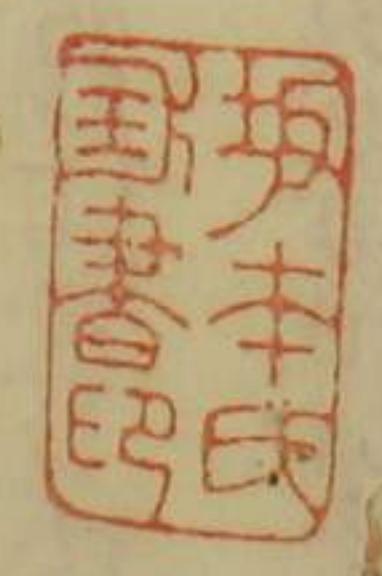 本氏
圖書印